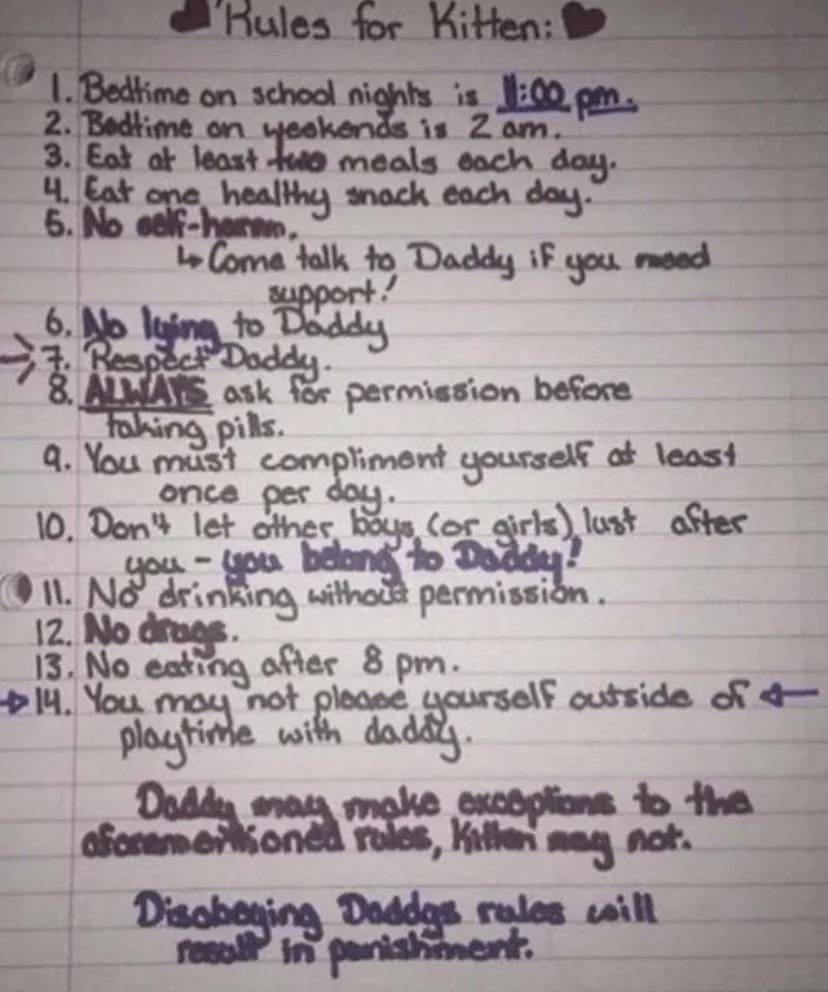 ♥ Rules for Kitten: ♥
1. Bedtime on school nights is 11:00 pm.
2. Bedtime on weekends is 2 am.
3. Eat at least two meals each day.
4. Eat one healthy snack each day.
5. No self-harm.
↳ Come talk to Daddy if you need
support!
6. No lying to Daddy
→ 7. Respect Daddy.
8. ALWAYS ask for permission before
taking pills.
9. You must compliment yourself at least
once per day.
10. Don't let other boys (or girls) lust after
you - you belong to Daddy!
11. No drinking without permission.
12. No drugs.
13. No eating after 8 pm.
→ 14. You may not please yourself outside of ←
playtime with daddy.
Daddy may make exceptions to the
aforementioned rules, Kitten may not.
Disobeying Daddys rules will
result in punishment.